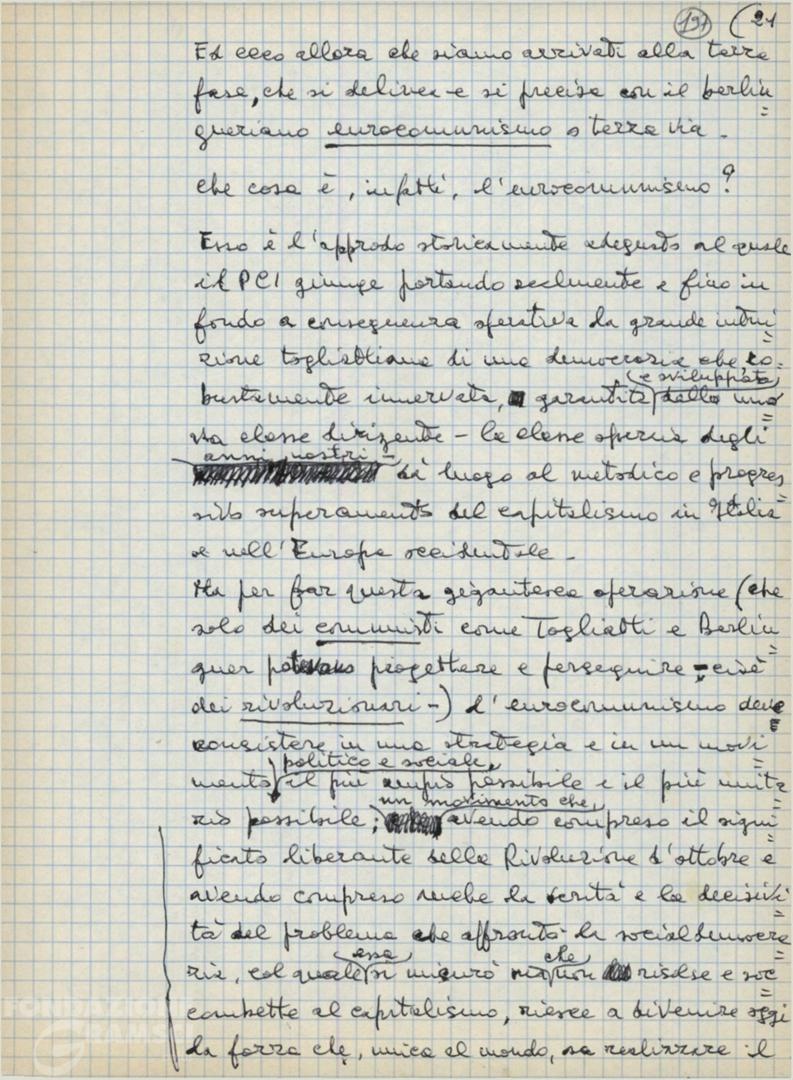 197 (21
Ed ecco allora che siamo arrivati alla terza
fase, che si delinea e si precisa con il berlin=
gueriano eurocomunismo o terza via.
Che cosa è, infatti, l'eurocomunismo?
Esso è l'approdo storicamente adeguato al quale
il PCI giunge portando realmente e fino in
fondo a conseguenza operativa la grande intui=
zione togliattiana di una democrazia che ro=
bustamente innervata, garantita (e sviluppata) dalla nuo=
va classe dirigente – la classe operaia degli
anni nostri –
dà luogo al metodico e progres=
sivo superamento del capitalismo in Italia
e nell'Europa occidentale.
Ma per far questa gigantesca operazione (che
solo dei comunisti come Togliatti e Berlin=
guer potevano progettare e perseguire – cioè
dei rivoluzionari –) l'eurocomunismo deve
consistere in una strategia e in un movi=
mento politico e sociale, il più ampio possibile e il più unita=
rio possibile; un movimento che, avendo compreso il signi=
ficato liberante della Rivoluzione d'ottobre e
avendo compreso anche la verità e la decisivi=
tà del problema che affrontò la socialdemocra=
zia, col quale essa si misurò ma che non risolse e soc=
combette al capitalismo, riesce a divenire oggi
la forza che, unica al mondo, sa realizzare il
FONDAZIONE
GRAMSCI